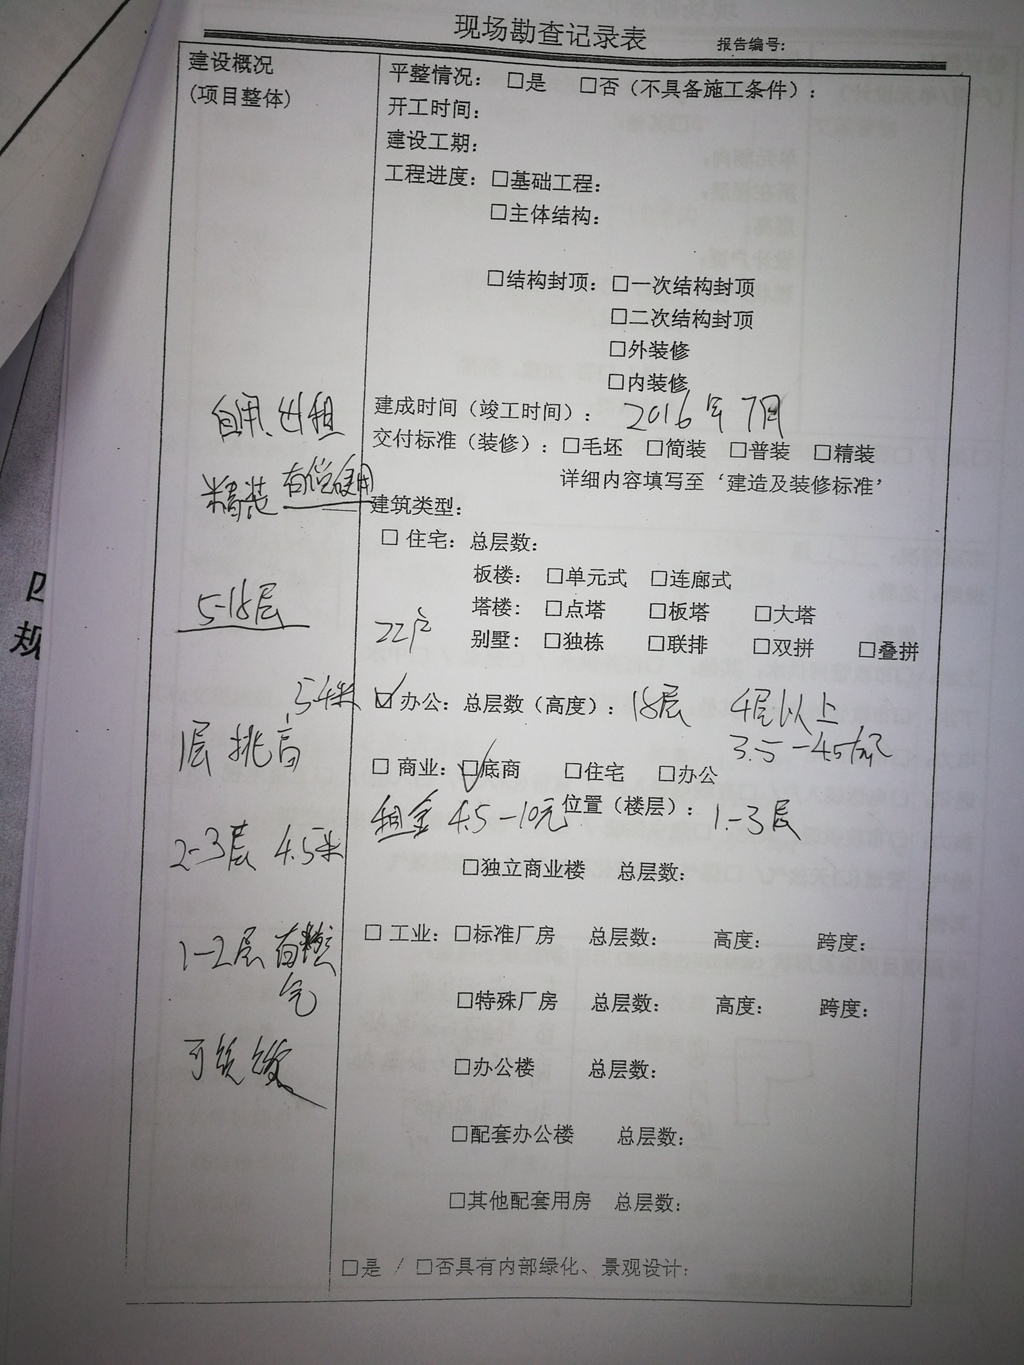 现场勘查记录表 报告编号：
建设概况
(项目整体)
平整情况： □是 □否（不具备施工条件）：
开工时间：
建设工期：
工程进度：□基础工程：
□主体结构：
□结构封顶：□一次结构封顶
□二次结构封顶
□外装修
□内装修
自用、出租
建成时间（竣工时间）： 2016年7月
交付标准（装修）：□毛坯 □简装 □普装 □精装
详细内容填写至‘建造及装修标准’
精装 有偿使用
建筑类型：
□ 住宅：总层数：
板楼： □单元式 □连廊式
5-18层
塔楼： □点塔 □板塔 □大塔
22户
别墅：□独栋 □联排 □双拼 □叠拼
5.4米
☑ 办公：总层数（高度）：18层 4层以上
3.5-4.5/㎡
1层 挑高
□ 商业：☑底商 □住宅 □办公
租金 4.5-10元 位置（楼层）：1-3层
2-3层 4.5米
□独立商业楼 总层数：
□ 工业：□标准厂房 总层数： 高度： 跨度：
1-2层 有
气
□特殊厂房 总层数： 高度： 跨度：
可
□办公楼 总层数：
□配套办公楼 总层数：
□其他配套用房 总层数：
□是 / □否具有内部绿化、景观设计：
四
规